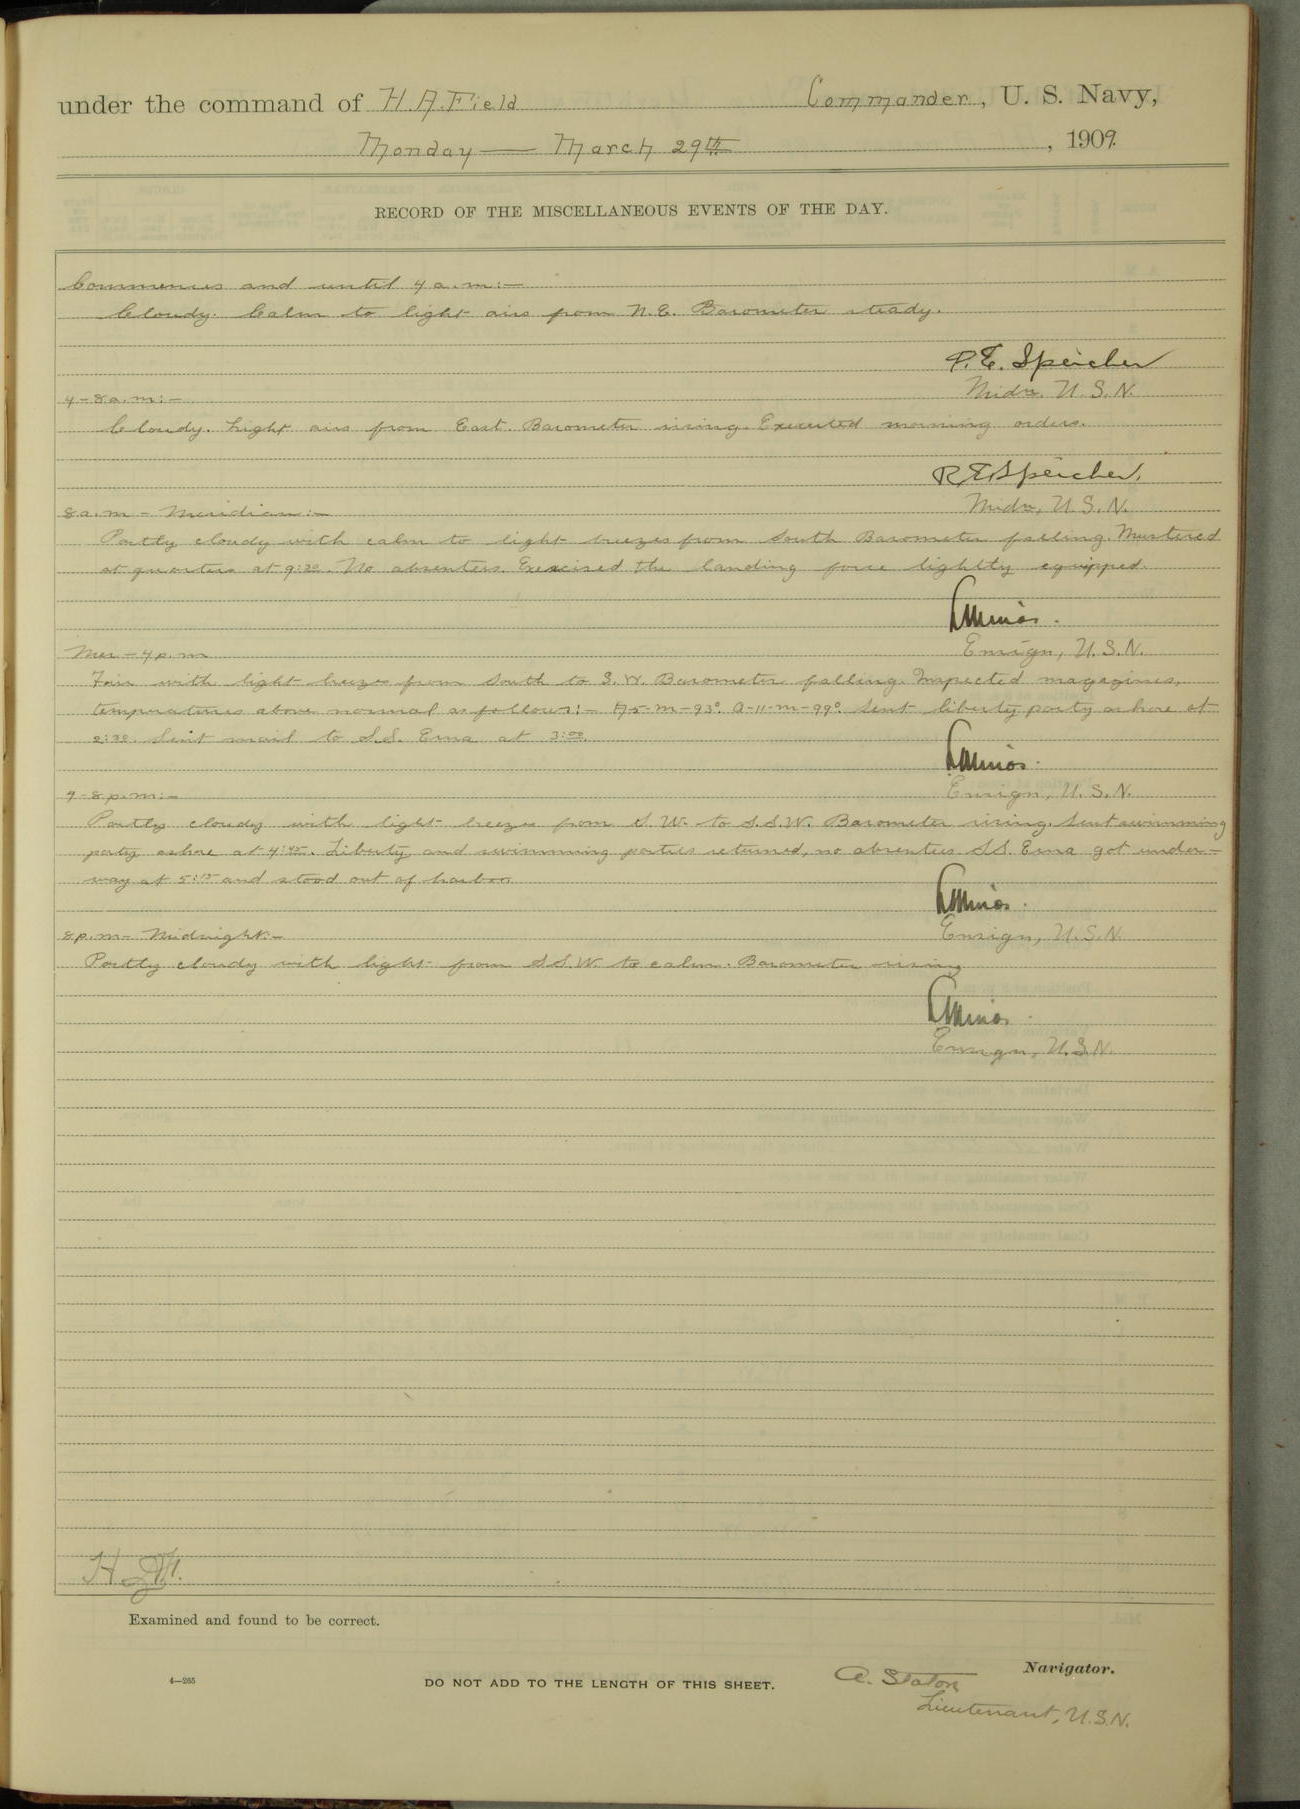 under the command of H A. Field Commander, U. S. Navy,
Monday — March 29th, 1909
RECORD OF THE MISCELLANEOUS EVENTS OF THE DAY.
Commences and until 4 a.m:—
Cloudy. Calm to light airs from N.E. Barometer steady.
R. E. Speicher
Midn. U.S.N.
4-8 a.m:—
Cloudy. Light airs from East. Barometer rising. Executed morning orders.
R E Speicher,
Midn, U.S.N.
8 a.m - Meridian:—
Partly cloudy with calm to light breezes from South Barometer falling. Mustered
at quarters at 9:30. No absentees. Exercised the landing force lightly equipped.
Ensign, U.S.N.
Mer - 4 p.m
Fair with light breezes from South to S.W. Barometer falling. Inspected magazines,
temperatures above normal as follows:— A-5-M-93°. A-11-M-99°. Sent liberty party ashore at
2:30. Sent mail to S.S. Erna at 3:00.
Ensign, U.S.N.
4-8 p.m:—
Partly cloudy with light breezes from S.W. to S.S.W. Barometer rising. Sent swimming
party ashore at 4:45. Liberty and swimming parties returned, no absentees. S.S. Erna got under-
way at 5:15 and stood out of harbor.
Ensign, U.S.N.
8 p.m - Midnight:—
Partly cloudy with light from S.S.W. to calm. Barometer rising
Ensign, U.S.N.
Examined and found to be correct.
4—265
DO NOT ADD TO THE LENGTH OF THIS SHEET.
A. Staton
Navigator.
Lieutenant, U.S.N.